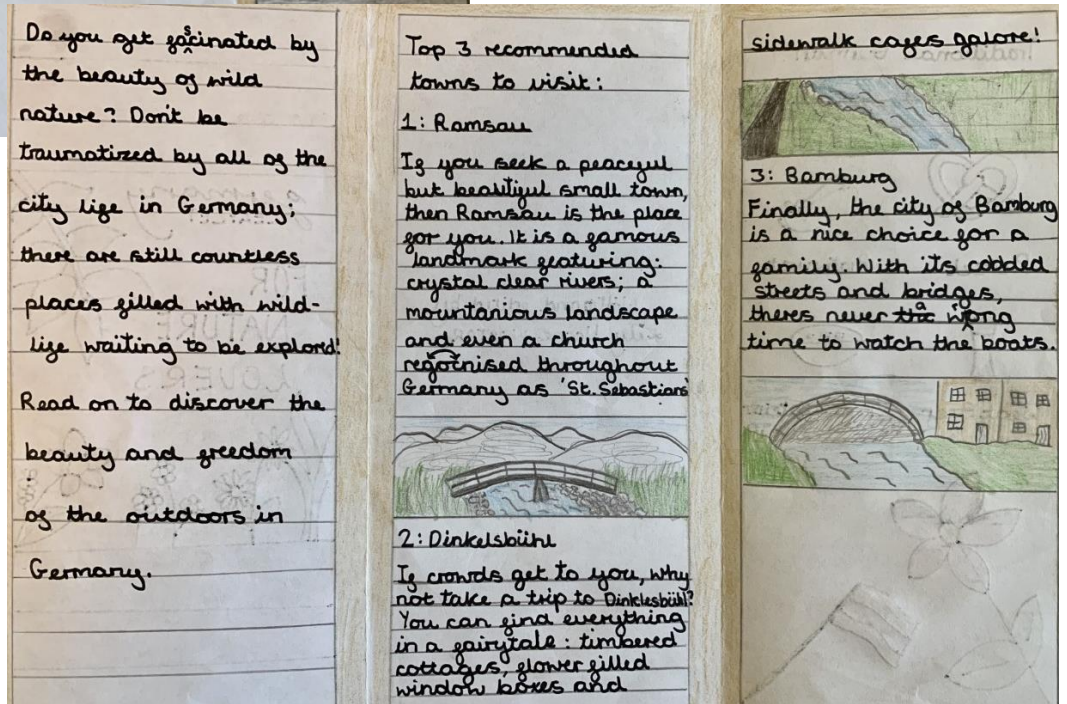 Do you get fascinated by
the beauty of wild
nature? Don't be
traumatized by all of the
city life in Germany;
there are still countless
places filled with wild-
life waiting to be explord!
Read on to discover the
beauty and freedom
of the outdoors in
Germany.
Top 3 recommended
towns to visit:
1: Ramsau
If you seek a peaceful
but beautiful small town,
then Ramsau is the place
for you. It is a famous
landmark featuring:
crystal clear rivers; a
mountanious landscape
and even a church
regotnised throughout
Germany as 'St. Sebastians'
2: Dinkelsbühl
If crowds get to you, why
not take a trip to Dinklesbühl?
You can find everything
in a fairytale: timbered
cottages, flower filled
window boxes and
sidewalk cafes galore!
3: Bamburg
Finally, the city of Bamburg
is a nice choice for a
family. With its cobbled
streets and bridges,
theres never a wrong
time to watch the boats.